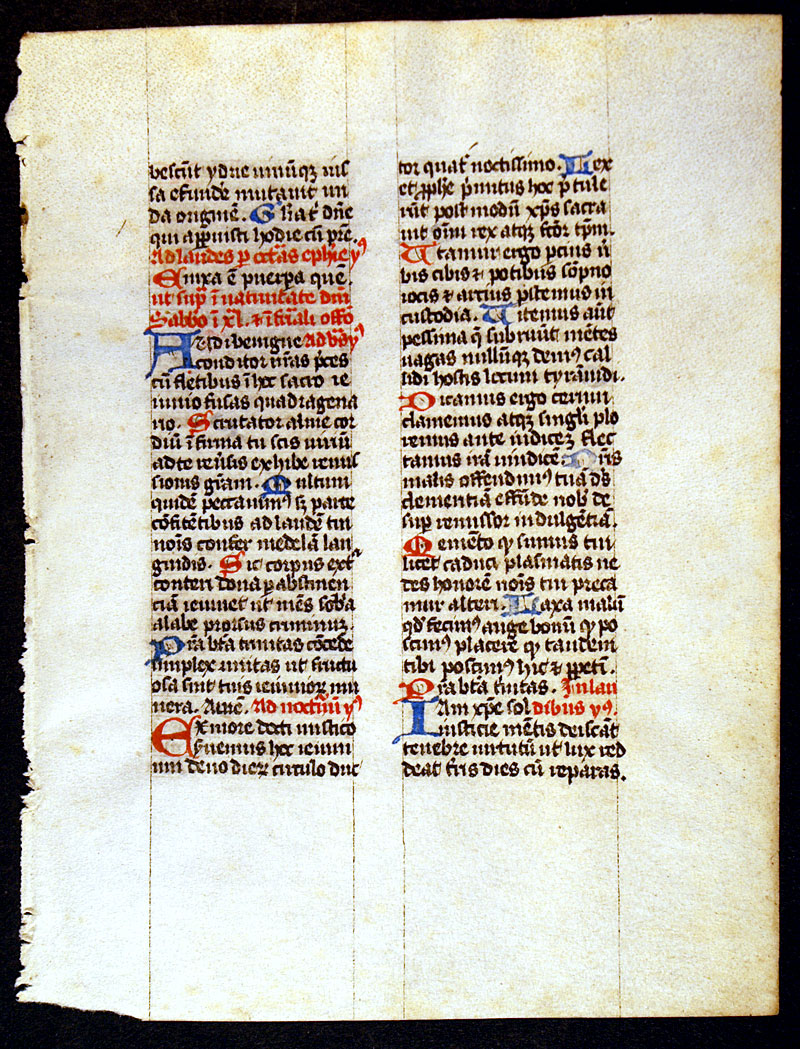 bescūt ydrie vinūqꝫ iuſ
ſa efunde mutavit un
da originē. Gl̄iat̕ dn̄e
qui apꝑuiſti hodie cū pr̄e.
Ad laudes ꝑ octās ephie yꝰ
Enixa ē puerpa quē.
ut ſupᷓ ī nativitate dn̄i
Sabbo ī xl. ⁊ ī fr̄iali offō
Audi benigne Ad vs̄ yꝰ
conditor nr̄as p̄ces
cū fletibus ī hoc sacro ie
iunio fuſas quadragena
rio. Scrutator alme cor
diū ī firma tu ſcis viriū
ad te rev̄ſis exhibe remiſ
ſionis gr̄am. Multum
quidē peccavimꝰ sꝫ parce
cōfitētibus ad laudē tui
noīs confer medelā lan
guidis. Sic corpus extᷓ
conteri dona ꝑ abſtinen
ciā ieiunet ut mēs sob̕a
a labe prorsus criminuꝫ.
Prā btā trinitas cōcede
ſimplex unitas ut fructu
oſa ſint tuis ieiunioꝝ mu
nera. Amē. Ad noctn̄u yꝰ
Ex more docti miſtico
ſervemus hoc ieiuni
um deno dieꝝ circulo duc
tor quat̕ notiſſimo. Lex
et ꝓphe p̄mitus hoc p̄tule
rūt poſtmodū xp̄s sacra
vit om̄i rex atqꝫ fc̄or tp̄m.
Utamur ergo pcius ū
bis cibis ⁊ potibus sōpno
iocis ⁊ arcius p̄ſtemus in
cuſtodia. Vitemus aūt
peſſima q̄ ſubruūt mētes
vagas nullūqꝫ demꝰ cal
lidi hoſtis locum tyrānidi.
Dicamus ergo cernui
clamemus atqꝫ ſingl̄i plo
remus ante iudicē flec
tamus irā vindicē. Nr̄is
malis offendimꝰ tuā dˢ
clementiā effūde nob̕ de
ſuꝑ remiſſor indulgētiā.
Memēto qꝫ ſumus tui
licet caduci plaſmatis ne
des honorē noīs tui preca
mur alteri. Laxa malū
qd̕ fecimꝰ auge bonū qꝫ po
ſcimꝰ placere qꝫ tandem
tibi poſſimꝰ hic ⁊ ꝑpetī.
Prā btā t̕nitas. In lau
Iam xp̄e ſol dibus yꝰ.
iuſticie mētis dehiſcāt
tenebre virtutū ut lux red
deat t̕ris dies cū reparas.